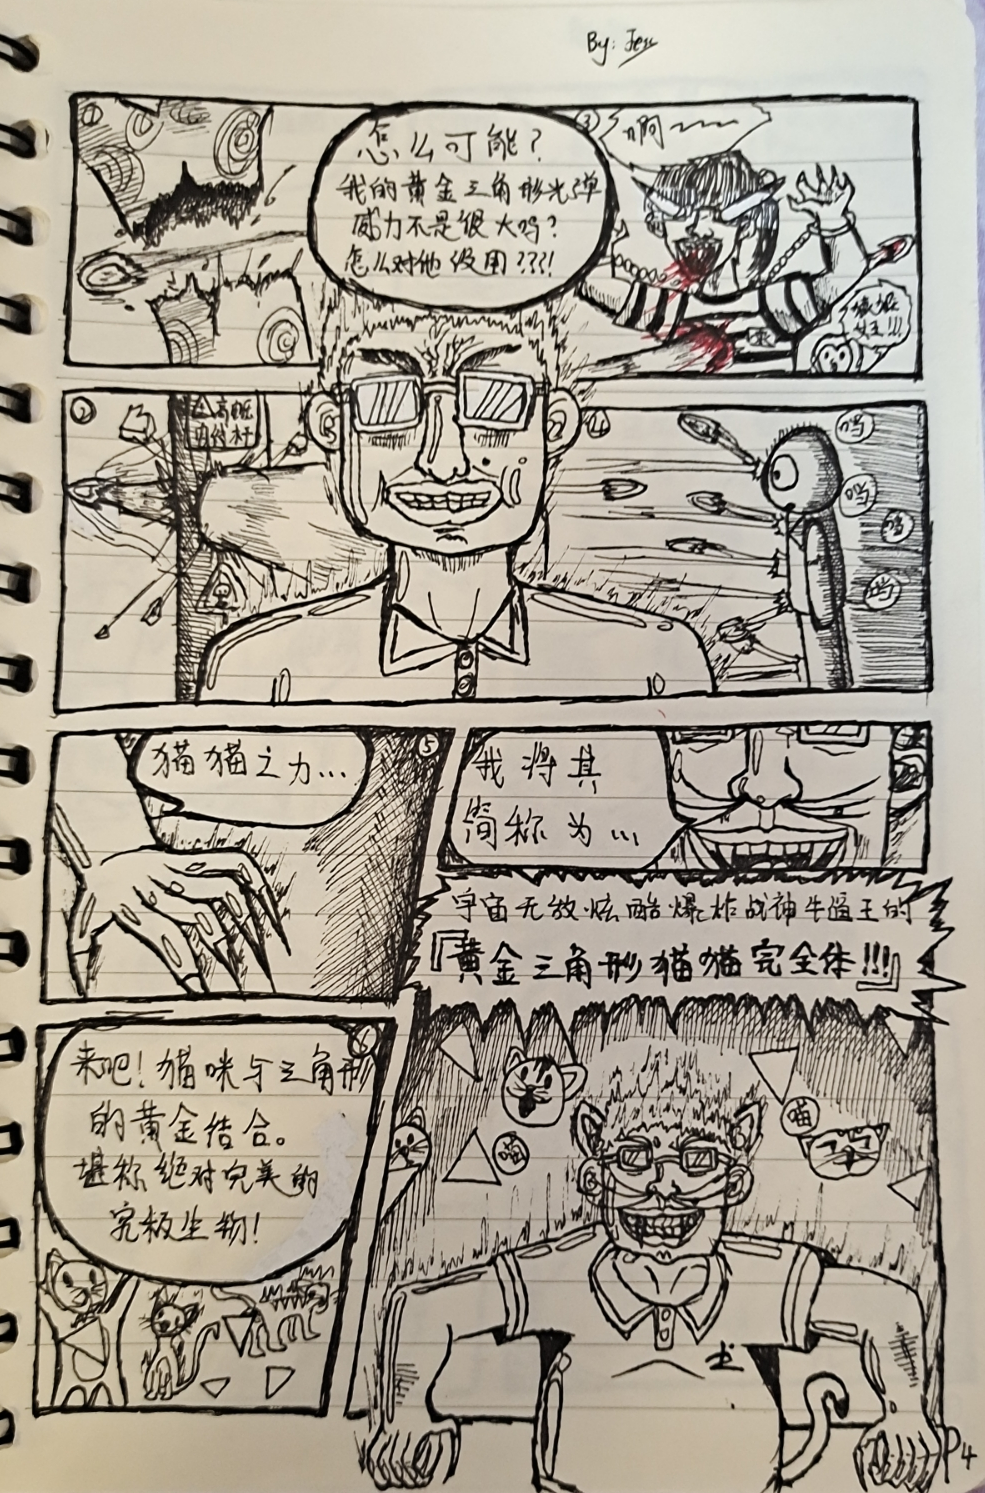 By: Jess
①
怎么可能？
我的黄金三角形光弹
威力不是很大吗？
怎么对他没用???!
③
啊~~~
②
高压
电线杆
④
呜
呜
呜
呜
猫猫之力…
⑤
我将其
简称为…
宇宙无敌炫酷爆炸战神牛逼王的
『黄金三角形猫猫完全体!!!』
⑥
来吧！猫咪与三角形
的黄金结合。
堪称绝对完美的
究极生物！
喵
喵
P4